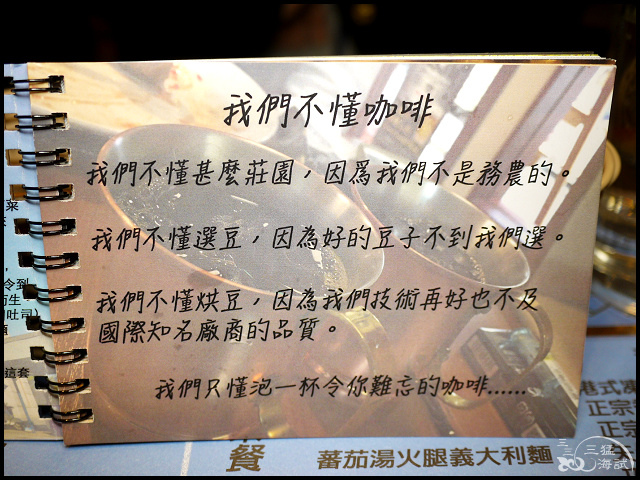 我們不懂咖啡
我們不懂甚麼莊園，因為我們不是務農的。
我們不懂選豆，因為好的豆子不到我們選。
我們不懂烘豆，因為我們技術再好也不及
國際知名廠商的品質。
我們只懂泡一杯令你難忘的咖啡......
菜
令到
衍生
吐司)
這套
港式凍
正宗
正宗
餐
蕃茄湯火腿義大利麵
三猛
海試